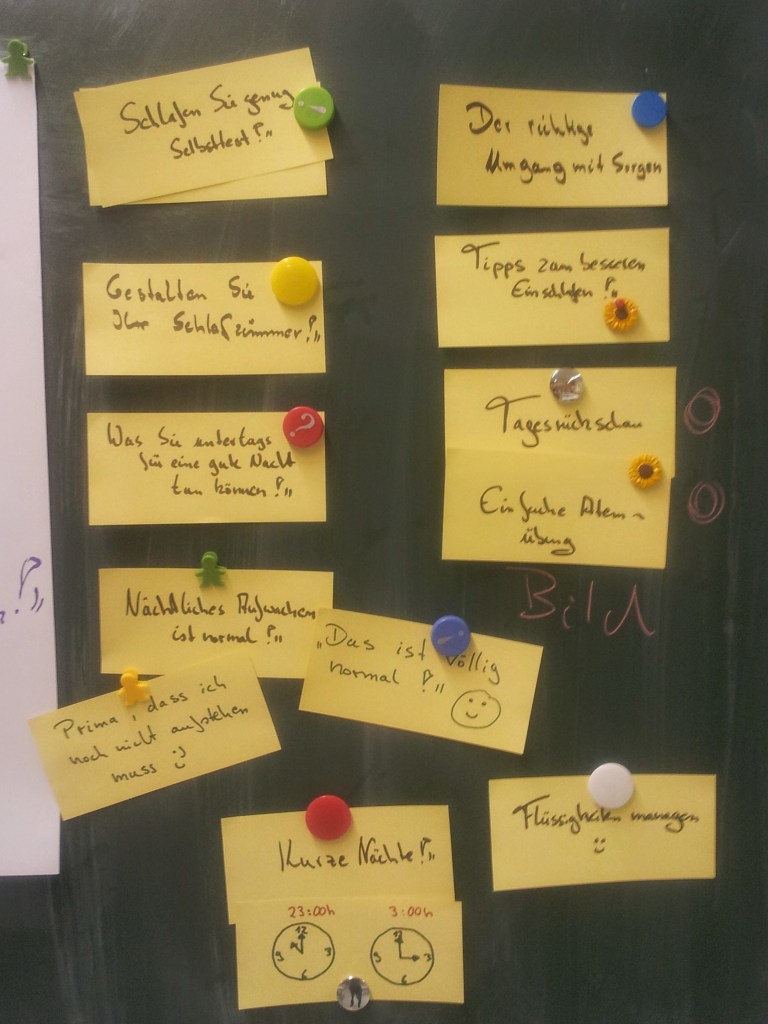 Schlafen Sie genug
Selbsttest?"
Gestalten Sie
Ihr Schlafzimmer!"
Was Sie untertags
für eine gute Nacht
tun können!"
Nächtliches Aufwachen
ist normal!"
Prima, dass ich
noch nicht aufstehen
muss :)
"Das ist völlig
normal!"
Der richtige
Umgang mit Sorgen
Tipps zum besseren
Einschlafen!"
Tagesrückschau
Einfache Atem-
übung
Bild
Flüssigkeiten managen
Kurze Nächte!"
23:00h 3:00h
12 3 6 9
12 3 6 9